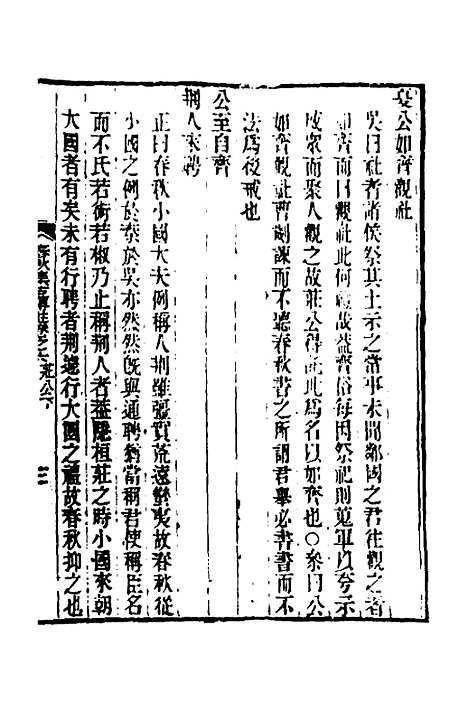 夏公如齊觀社
吳曰社者諸侯祭其土示之當事未聞鄰國之君往觀之者
如齊而曰觀社此何義哉蓋齊俗每因祭祀則蒐軍以夸示
威眾而聚人觀之故莊公得託此爲名以如齊也○余曰公
如齊觀社曹劌諫而不聽春秋書之所謂君舉必書書而不
法爲後戒也
公至自齊
荆人來聘
正曰春秋小國大夫例稱人荆雖彊實荒遠蠻夷故春秋從
小國之例於秦於吳亦然然旣與通聘猶當稱君使稱臣名
而不氏若術若椒乃止稱荆人者蓋隱桓莊之時小國來朝
大國者有矣未有行聘者荆遽行大國之禮故春秋抑之也
春秋 莊公下